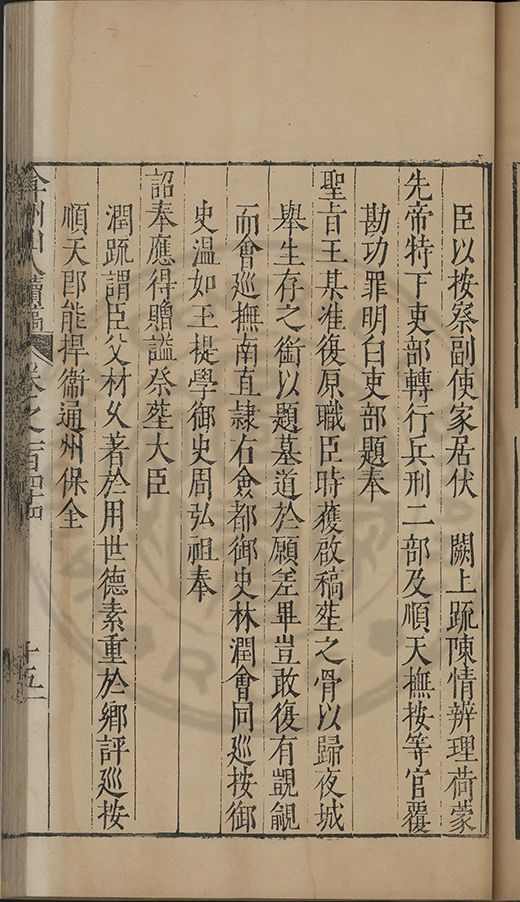 臣以按察副使家居伏　闕上疏陳情辨理荷蒙
先帝特下吏部轉行兵刑二部及順天撫按等官覆
勘功罪明白吏部題奉
聖旨王某准復原職臣時獲啟稿塟之骨以歸夜城
舉生存之銜以題墓道於願差畢豈敢復有覬覦
而會巡撫南直隷右僉都御史林潤會同巡按御
史温如玉提學御史周弘祖奉
詔奉應得贈謚祭塟大臣
潤疏謂臣父材久著於用世德素重於鄉評廵按
順天郎能捍衞通州保全
弇州山人續稿　卷之一百四十　十五